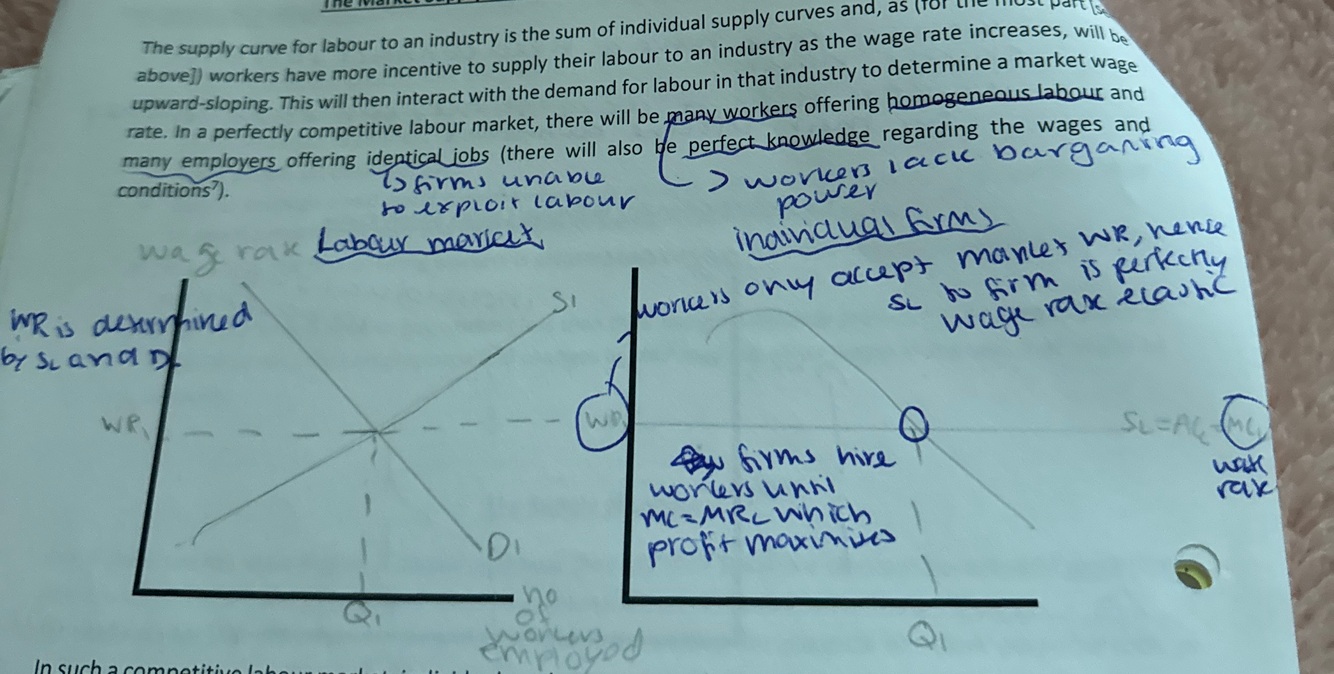 The Market
The supply curve for labour to an industry is the sum of individual supply curves and, as (for the most part [se
above]) workers have more incentive to supply their labour to an industry as the wage rate increases, will be
upward-sloping. This will then interact with the demand for labour in that industry to determine a market wage
rate. In a perfectly competitive labour market, there will be many workers offering homogeneous labour and
many employers offering identical jobs (there will also be perfect knowledge regarding the wages and
conditions⁷).
↳ firms unable
to exploit labour
workers lack barganing
power
wage rate Labour market
individual firms
workers only accept market WR, hence
SL to firm is perfectly
wage rate elastic
WR is determined
by SL and DL
S1
WR1
WR1
SL=ACL=MCL
wage
rate
firms hire
workers until
MC=MRL which
profit maximises
D1
Q1
no
of
workers
employed
Q1
In such a competitive labour market, individual